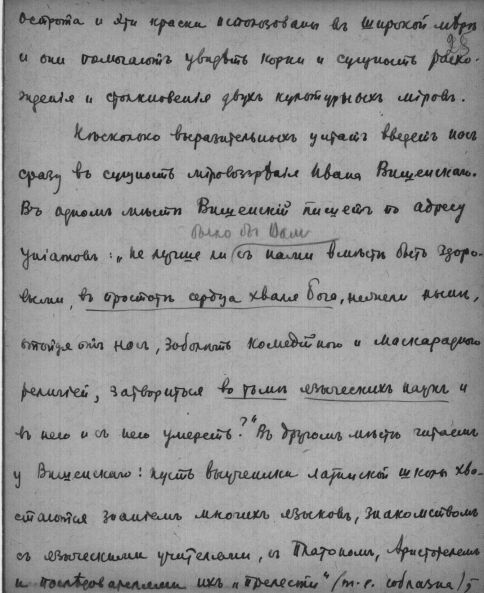 острота и эти краски использованы въ широкой мѣрѣ
28
и они помогаютъ увидѣть корни и сущность расхо-
жденія и столкновенія двухъ культурныхъ міровъ.
Нѣсколько выразительныхъ цитатъ введетъ насъ
сразу въ сущность міровоззрѣнія Ивана Вишенскаго.
Въ одномъ мѣстѣ Вишенскій пишетъ по адресу
было бы вам
уніатовъ: „не лучше ли съ нами вмѣстѣ быть здоро-
выми, въ простотѣ сердца хваля Бога, нежели нынѣ,
отойдя отъ насъ, заболѣть комедійною и маскарадною
религіей, затвориться во тьмѣ языческихъ наукъ и
въ ней и съ нею умереть?“ Въ другомъ мѣстѣ читаемъ
у Вишенскаго: пусть выученики латинской школы хва-
стаются знаніемъ многихъ языковъ, знакомствомъ
съ языческими учителями, съ Платономъ, Аристотелемъ
и послѣдователями ихъ „прелести“ (т. е. соблазна),